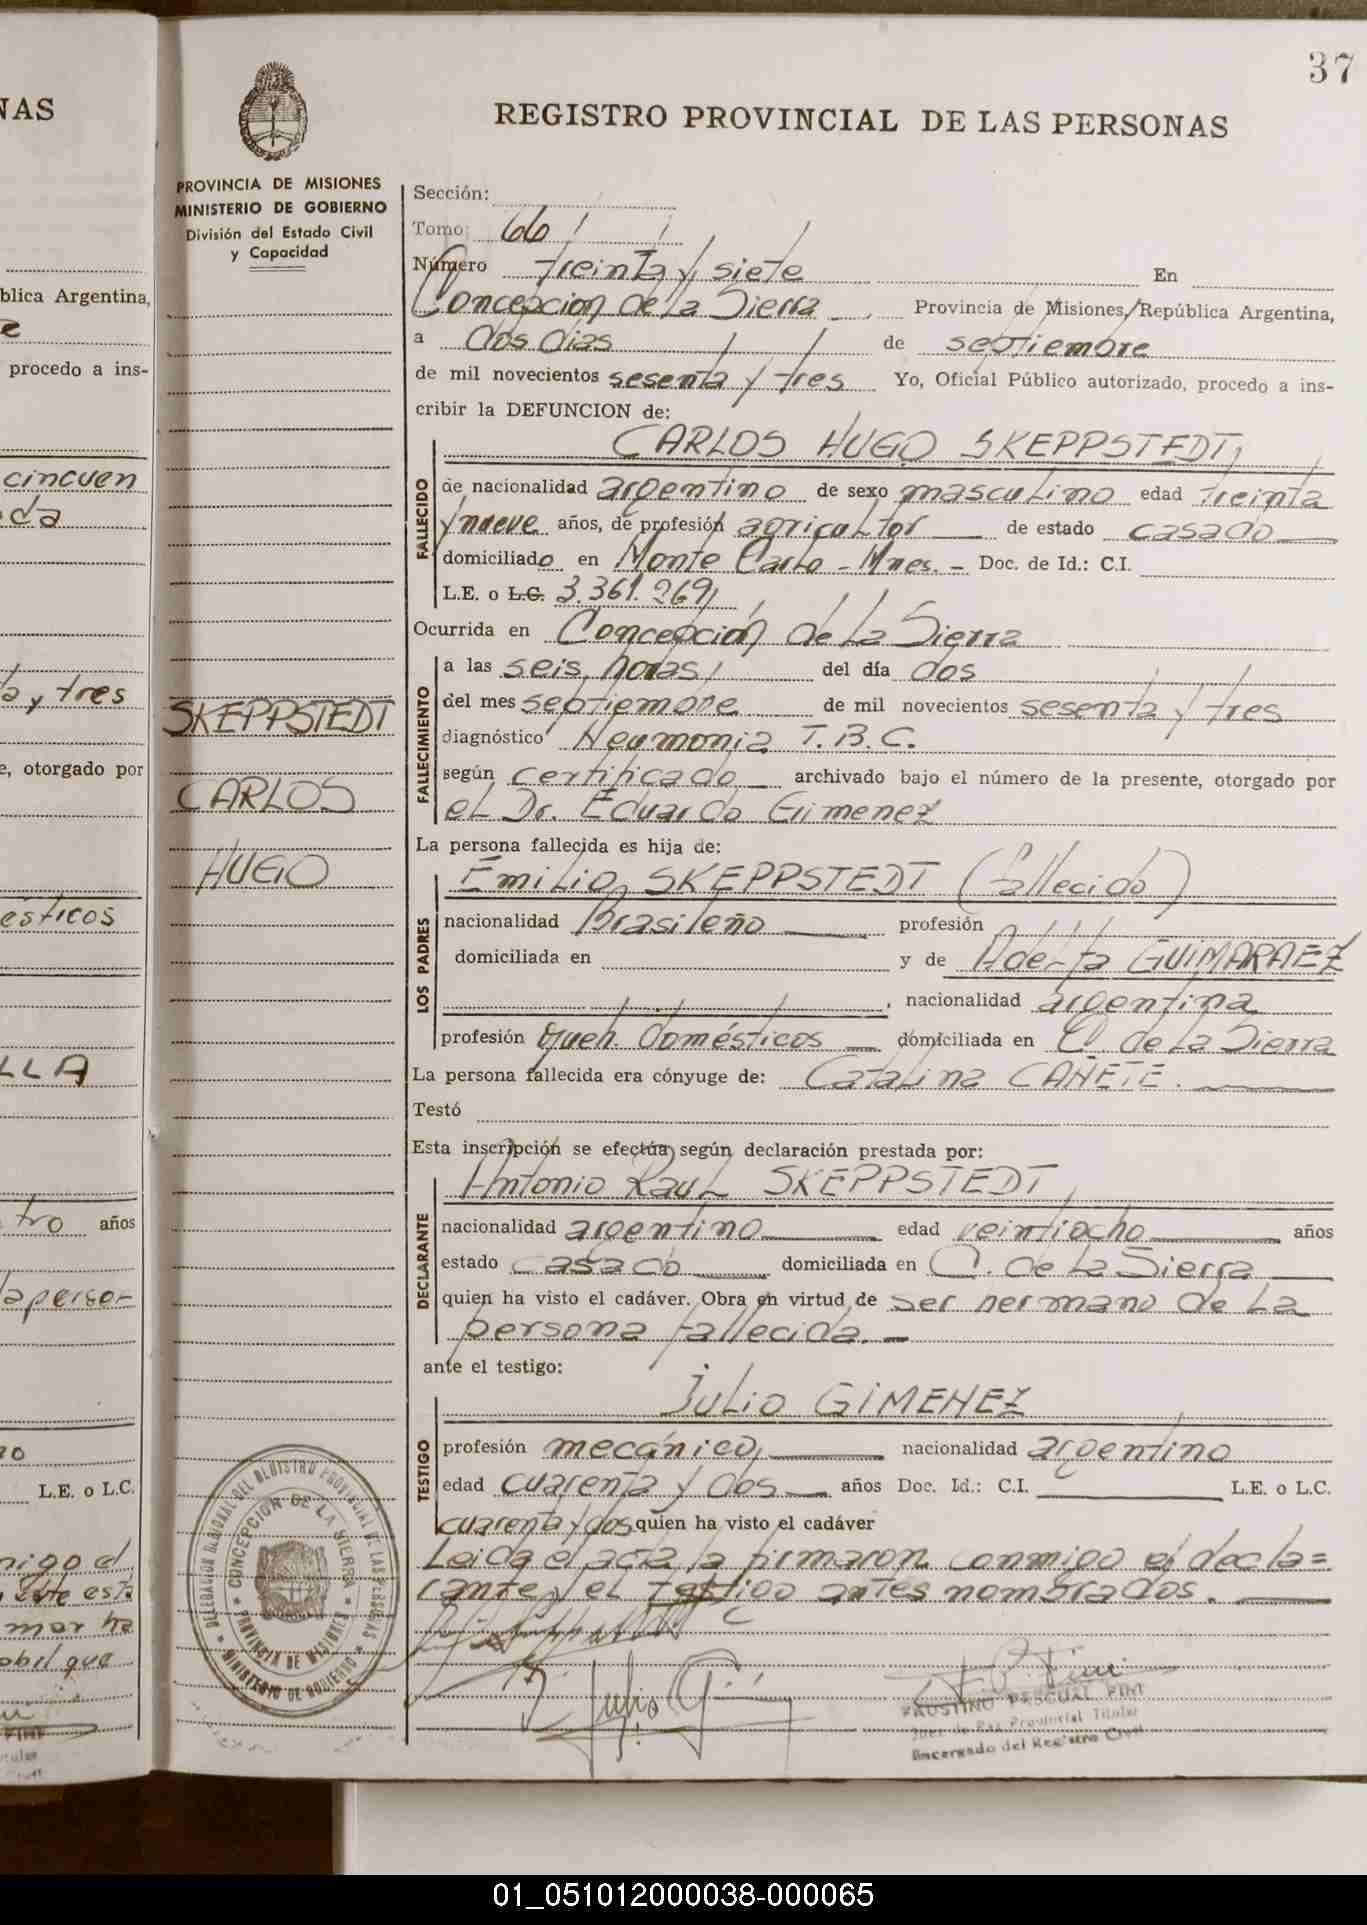 37
NAS
REGISTRO PROVINCIAL DE LAS PERSONAS
PROVINCIA DE MISIONES
MINISTERIO DE GOBIERNO
División del Estado Civil
y Capacidad
Sección:
Tomo: 66
Número treinta y siete En
Concepcion de la Sierra Provincia de Misiones, República Argentina,
a dos dias de septiembre
de mil novecientos sesenta y tres Yo, Oficial Público autorizado, procedo a ins-
cribir la DEFUNCION de:
CARLOS HUGO SKEPPSTEDT,
FALLECIDO
de nacionalidad argentino de sexo masculino edad treinta
y nueve años, de profesión agricultor de estado casado
domiciliado en Monte Carlo - Mnes. - Doc. de Id.: C.I.
L.E. o L.C. 3.361.269,
Ocurrida en Concepción de la Sierra
FALLECIMIENTO
a las seis horas, del día dos
del mes septiembre de mil novecientos sesenta y tres
diagnóstico Neumonia T.B.C.
según certificado archivado bajo el número de la presente, otorgado por
el Dr. Eduardo Gimenez
SKEPPSTEDT
CARLOS
HUGO
La persona fallecida es hija de:
LOS PADRES
Emilio SKEPPSTEDT (fallecido)
nacionalidad Brasileño profesión
domiciliada en y de Adelfa GUIMARAEZ
, nacionalidad argentina
profesión Queh. domésticos domiciliada en C. de la Sierra
La persona fallecida era cónyuge de: Catalina CAÑETE.
Testó
Esta inscripción se efectúa según declaración prestada por:
DECLARANTE
Antonio Raul SKEPPSTEDT
nacionalidad argentino edad veintiocho años
estado casado domiciliada en C. de la Sierra
quien ha visto el cadáver. Obra en virtud de ser hermano de la
persona fallecida.
ante el testigo:
TESTIGO
Julio GIMENEZ
profesión mecánico, nacionalidad argentino
edad cuarenta y dos años Doc. Id.: C.I. L.E. o L.C.
cuarenta y dos quien ha visto el cadáver
Leida el acta la firmaron conmigo el decla=
rante y el testigo antes nombrados.
Julio
FAUSTINO PASCUAL PINI
Juez de Paz Provincial Titular
Encargado del Registro Civil
DELEGACION REGIONAL DEL REGISTRO PROVINCIAL DE LAS PERSONAS
MINISTERIO DE GOBIERNO
CONCEPCION DE LA SIERRA
PROVINCIA DE MISIONES
blica Argentina,
e
procedo a ins-
cincuen
da
y tres
e, otorgado por
ésticos
LLA
tro años
L.E. o L.C.
migo el
este est
01_051012000038-000065